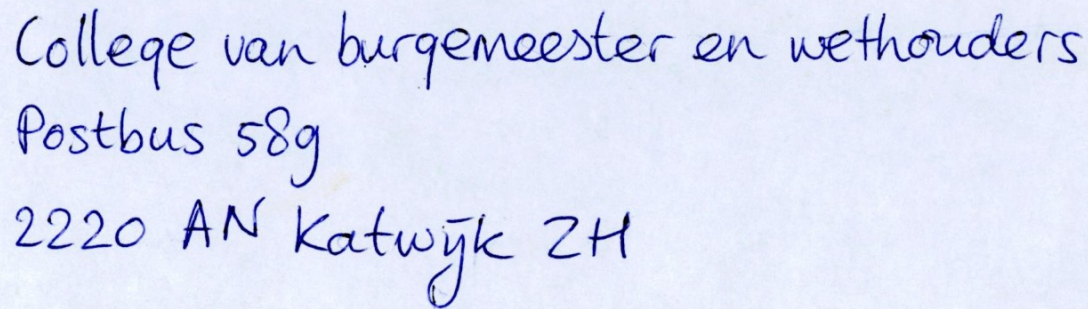 College van burgemeester en wethouders
Postbus 589
2220 AN Katwijk ZH